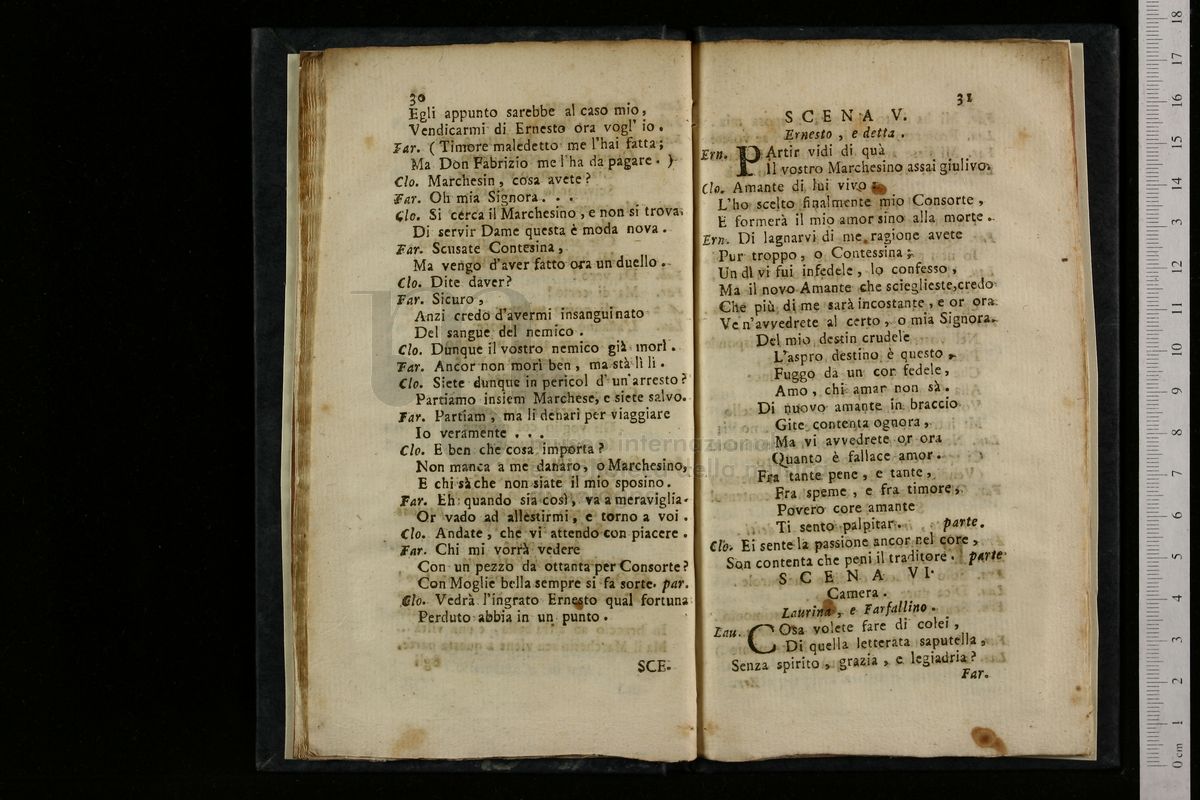 30
Egli appunto sarebbe al caso mio,
Vendicarmi di Ernesto ora vogl' io.
Far. (Timore maledetto me l'hai fatta;
Ma Don Fabrizio me l'ha da pagare.)
Clo. Marchesin, cosa avete?
Far. Oh mia Signora. . .
Clo. Si cerca il Marchesino, e non si trova.
Di servir Dame questa è moda nova.
Far. Scusate Contesina,
Ma vengo d'aver fatto ora un duello.
Clo. Dite daver?
Far. Sicuro,
Anzi credo d'avermi insanguinato
Del sangue del nemico.
Clo. Dunque il vostro nemico già morì.
Far. Ancor non morì ben, ma stà lì lì.
Clo. Siete dunque in pericol d' un'arresto?
Partiamo insiem Marchese, e siete salvo.
Far. Partiam, ma li denari per viaggiare
Io veramente . . .
Clo. E ben che cosa importa?
Non manca a me danaro, o Marchesino,
E chi sà che non siate il mio sposino.
Far. Eh quando sia così, va a meraviglia.
Or vado ad allestirmi, e torno a voi.
Clo. Andate, che vi attendo con piacere.
Far. Chi mi vorrà vedere
Con un pezzo da ottanta per Consorte?
Con Moglie bella sempre si fa sorte. par.
Clo. Vedrà l'ingrato Ernesto qual fortuna
Perduto abbia in un punto.
SCE-
31
SCENA V.
Ernesto, e detta.
Ern. PArtir vidi di quà
Il vostro Marchesino assai giulivo.
Clo. Amante di lui vivo
L'ho scelto finalmente mio Consorte,
E formerà il mio amor sino alla morte.
Ern. Di lagnarvi di me ragione avete
Pur troppo, o Contessina;
Un dì vi fui infedele, lo confesso,
Ma il novo Amante che sciegliete,credo
Che più di me sarà incostante, e or ora
Ve n'avvedrete al certo, o mia Signora.
Del mio destin crudele
L'aspro destino è questo,
Fuggo da un cor fedele,
Amo, chi amar non sà.
Di nuovo amante in braccio
Gite contenta ognora,
Ma vi avvedrete or ora
Quanto è fallace amor.
Fra tante pene, e tante,
Fra speme, e fra timore,
Povero core amante
Ti sento palpitar. parte.
Clo. Ei sente la passione ancor nel core,
Son contenta che peni il traditore. parte
SCENA VI.
Camera.
Laurina, e Farfallino.
Lau. COsa volete fare di colei,
Di quella letterata saputella,
Senza spirito, grazia, e legiadria?
Far.